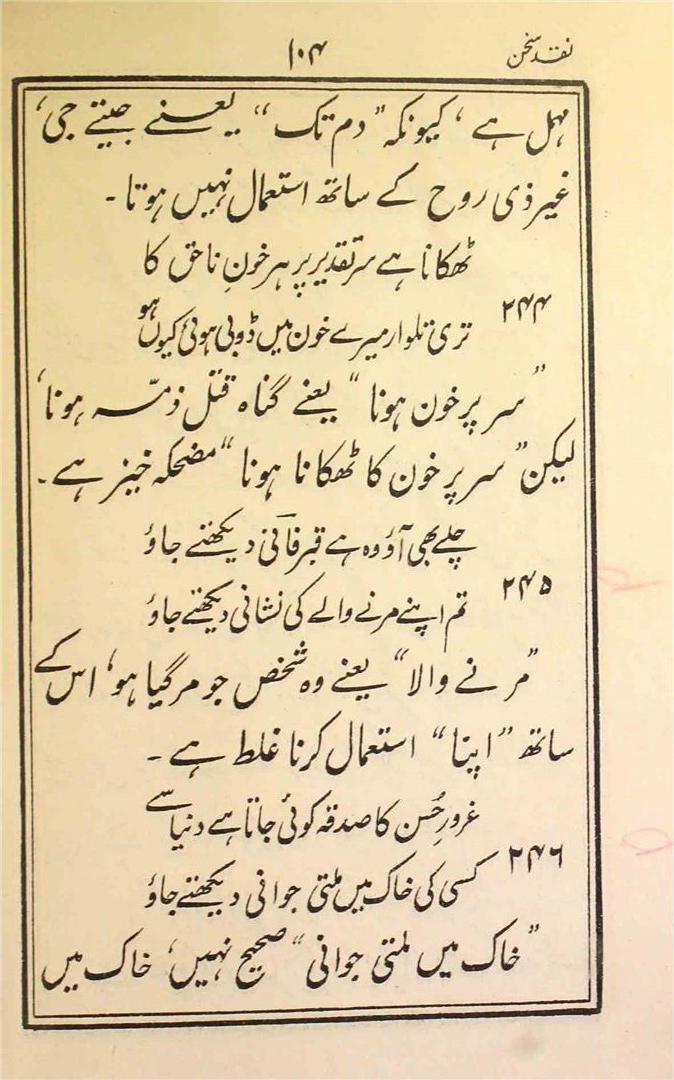 نقد سخن
۱۰۴
مہمل ہے، کیونکہ "دم تک" یعنے جیتے جی،
غیر ذی روح کے ساتھ استعمال نہیں ہوتا۔
ٹھکانا ہے سر تقدیر پر ہر خونِ ناحق کا
۲۴۴
تری تلوار میرے خون میں ڈوبی ہوئی کیوں ہو
"سر پر خون ہونا" یعنے گناہ قتل ذمّہ ہونا،
لیکن "سر پر خون کا ٹھکانا ہونا" مضحکہ خیز ہے۔
چلے بھی آؤ وہ ہے قبر فانی دیکھتے جاؤ
۲۴۵
تم اپنے مرنے والے کی نشانی دیکھتے جاؤ
"مرنے والا" یعنے وہ شخص جو مرگیا ہو، اس کے
ساتھ "اپنا" استعمال کرنا غلط ہے۔
غرورِ حُسن کا صدقہ کوئی جاتا ہے دنیا سے
۲۴۶
کسی کی خاک میں ملتی جوانی دیکھتے جاؤ
"خاک میں ملتی جوانی" صحیح نہیں، خاک میں